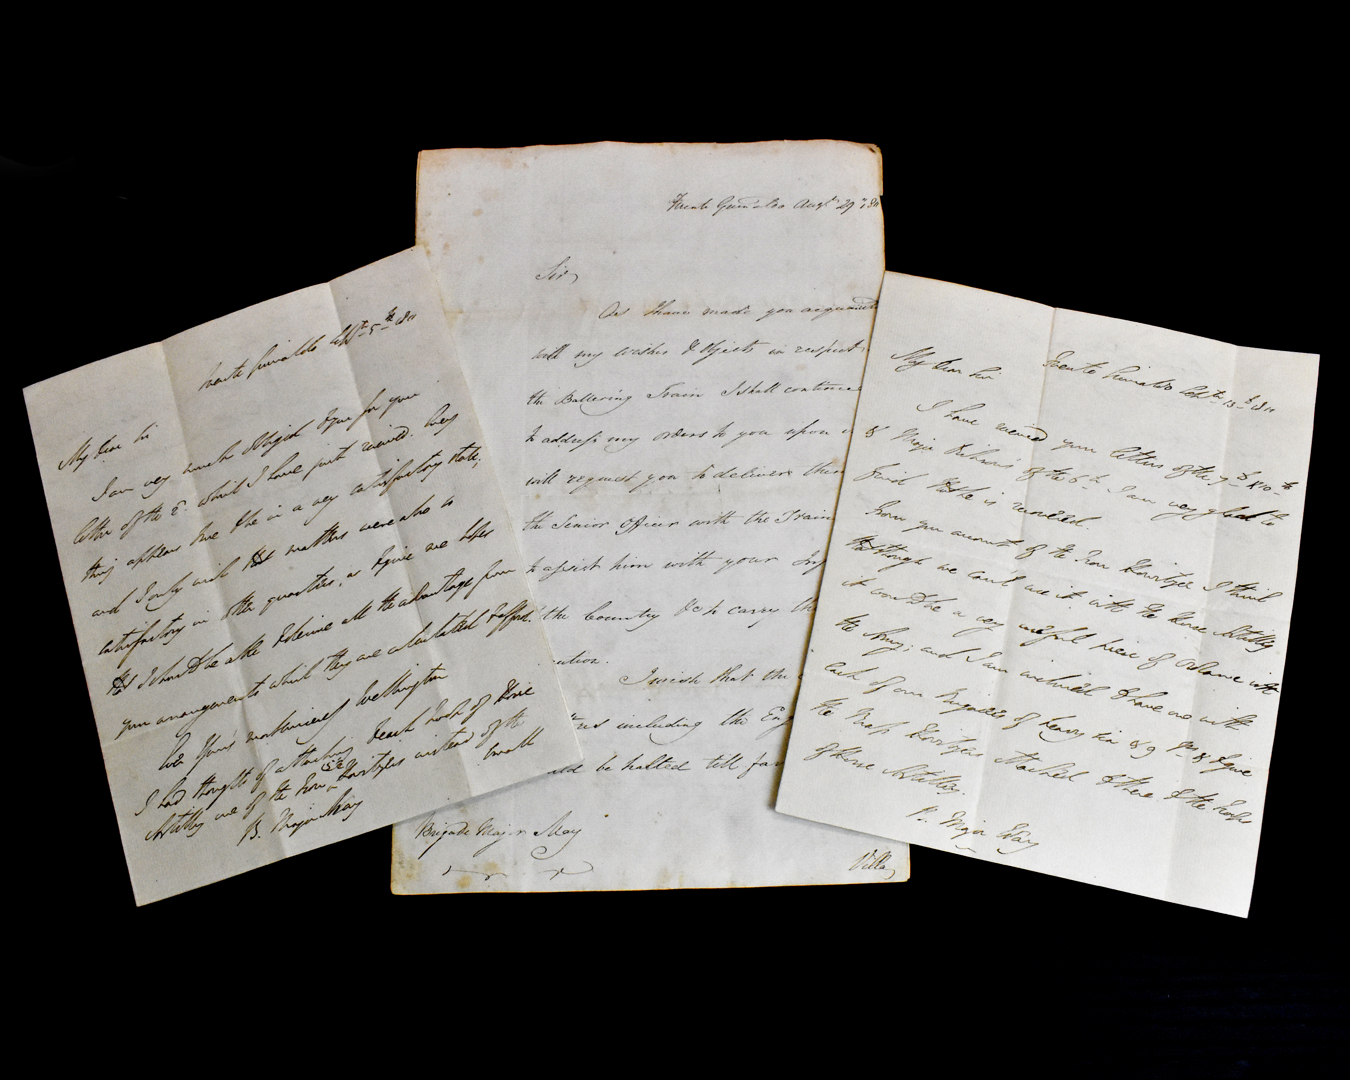 Septr. 5th 1811
My dear Sir
I am very much obliged to you for your
letter of the 2d. which I have just received. Every
thing appears here to be in a very satisfactory state;
and I only wish that matters were also as
satisfactory in other quarters, as to give me hopes
that I should be able to derive all the advantage from
your arrangements which they are calculated to afford.
Ever Yours most sincerely Wellington
I had thought of attaching to each Troop of Horse
Artillery one of the Iron Howitzers instead of the
small
B. Major May
Augt. 29 1811
Sir,
As I have made you acquainted
with my wishes & objects in respect
the Battering Train I shall continue
to address my orders to you upon
will request you to deliver them
the Senior Officer with the Train
to assist him with your
the Country &c to carry
I wish that the
including the Eng
be halted till
Brigade Major May
Villa
Septr. 13th 1811
My dear Sir
I have received your letters of the 7th & 10th
& Major of the 6th. I am very glad to
find that he is
From your account of the Iron Howitzer I think
that though we could use it with the Horse Artillery
it would be a very useful piece of Ordnance with
the Army; and I am inclined to have one with
each of our brigades of heavy six & 9 prs & to give
the Brass Howitzers attached to there to the troops
of Horse Artillery
B. Major May